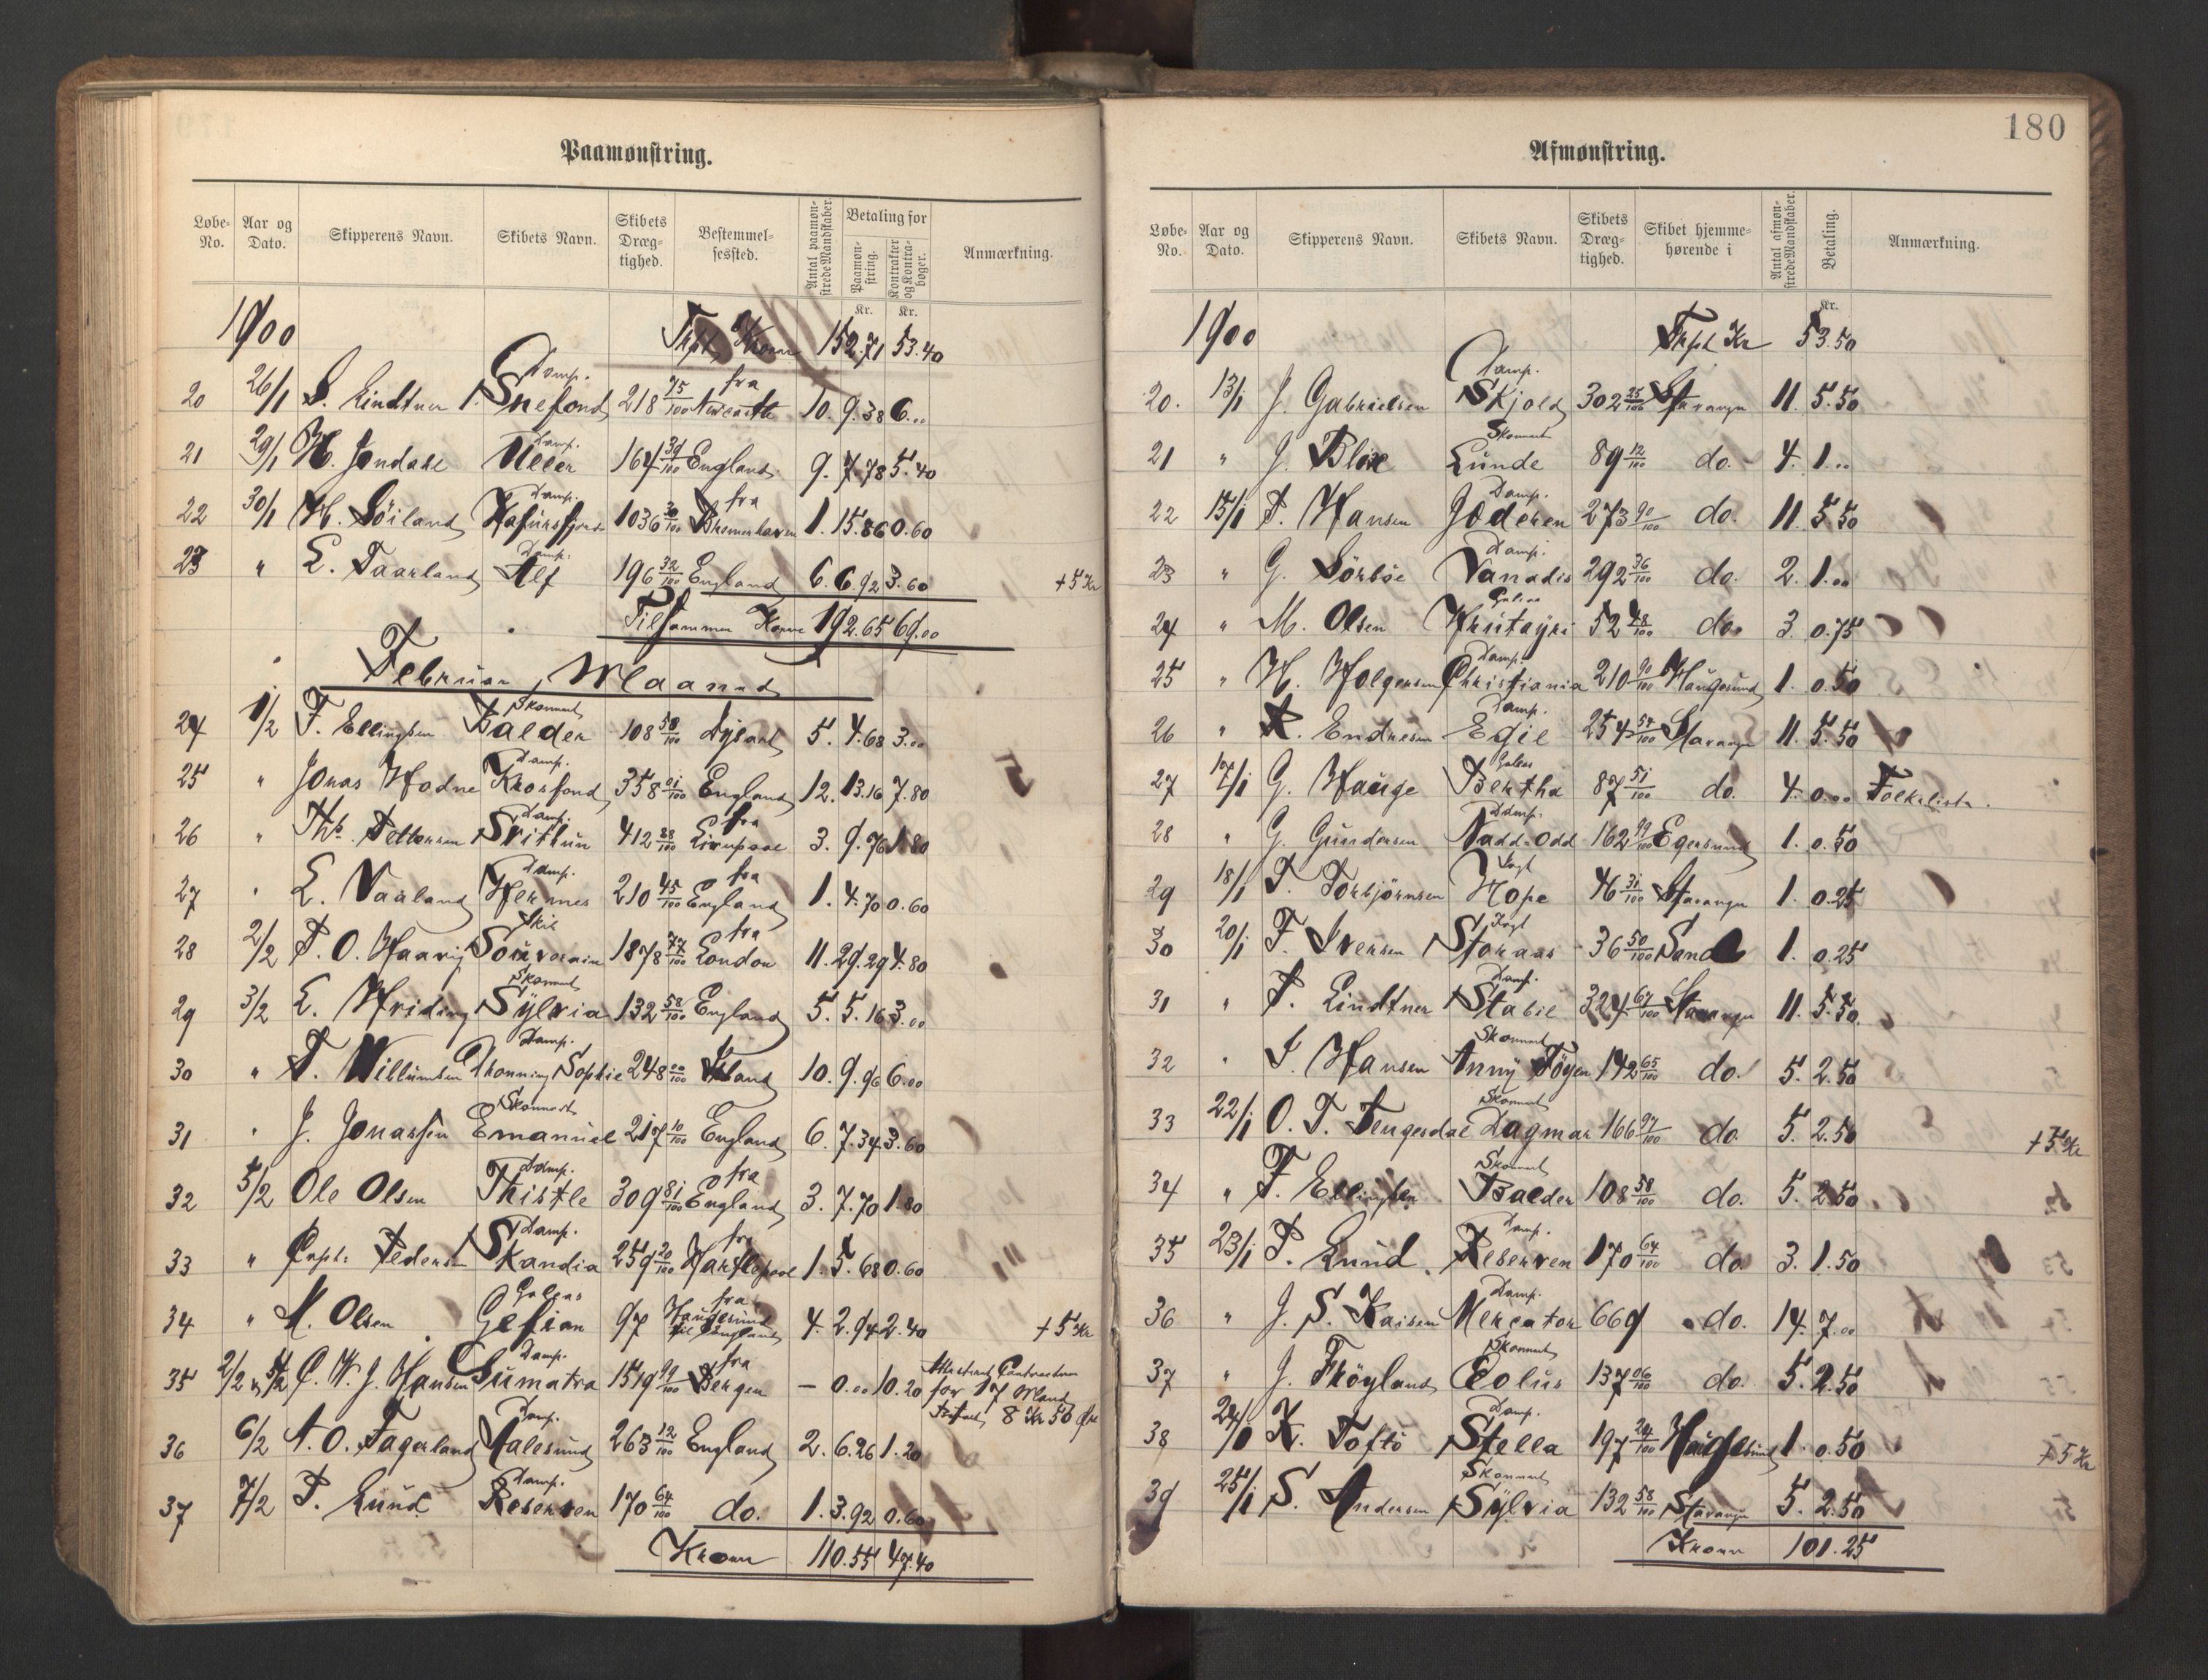 Paamønstring.
Løbe-No. Aar og Dato. Skipperens Navn. Skibets Navn. Skibets Dræg-tighed. Bestemmel-sessted. Antal paamøn-strede Mandskaber. Betaling for Paamøn-string. Kontrakter og Kontra-bøger. Anmærkning.
Kr. Kr.
1900 Trpt Kroner 152.71 53.40
20 26/1 S. Lindtner Damp. Snefond 218 75/100 fra Newcastle 10. 9.38 6.00
21 29/1 H. Jøndahl Damp. Uller 164 39/100 England 9. 7.78 5.40
22 30/1 H. Söiland Damp. Hafursfjord 1036 30/100 fra Bremerhaven 1. 15.86 0.60
23 " L. Taarland Damp. Alf 196 32/100 England 6. 6.92 3.60 + 5 Kr
Tilsammen Kroner 192.65 69.00
Februar Maaned
24 1/2 F. Ellingsen Skonnert Balder 108 58/100 Dysart 5. 4.68 3.00
25 " Jonas Hodne Damp. Krosfond 358 01/100 England 12. 13.16 7.80
26 " Ths. Pettersen Damp. Svithun 412 88/100 fra Liverpool 3. 9.76 1.80
27 " L. Vaaland Damp. Hermes 210 45/100 fra England 1. 4.70 0.60
28 2/2 P. O. Haavig Skib Souverain 1878 77/100 fra London 11. 29.29 4.80
29 3/2 L. Hviding Skonnert Sylvia 132 58/100 England 5. 5.16 3.00
30 " T. Willumsen Damp. Dronning Sophie 248 00/100 Island 10. 9.96 6.00
31 " J. Jonassen Skonnert Emanuel 217 10/100 England 6. 7.34 3.60
32 5/2 Ole Olsen Damp. Thistle 309 81/100 fra England 3. 7.70 1.80
33 " Capt: Pedersen Damp. Skandia 259 20/100 fra Hartlepool 1. 5.68 0.60
34 " M. Olsen Galeas Gefion 97 fra Haugesund til England 4. 2.94 2.40 + 5 Kr
35 2/2 & 5/2 C. W. J. Hansen Damp. Sumatra 1519 99/100 fra Bergen — 0.00 10.20 for 17 Mand 8 Kr 50 Øre
36 6/2 A. O. Fagerland Damp. Aalesund 263 12/100 England 2. 6.26 1.20
37 7/2 P. Lund Damp. Reserven 170 64/100 do. 1. 3.92 0.60
Kroner 110.55 47.40
180
Afmønstring.
Løbe-No. Aar og Dato. Skipperens Navn. Skibets Navn. Skibets Dræg-tighed. Skibet hjemme-hørende i Antal afmøn-strede Mandskaber. Betaling. Anmærkning.
Kr.
1900 Trpt Kr 53.50
20. 13/1 J. Gabrielsen Damp. Skjold 302 25/100 Stavanger 11. 5.50
21 " J. Blixe Skonnert Lunde 89 12/100 do. 4. 1.00
22 15/1 P. Hansen Damp. Jæderen 273 90/100 do. 11. 5.50
23 " G. Sörböe Damp. Vanadis 292 36/100 do. 2. 1.00
24 " M. Olsen Galeas 52 48/100 do. 3. 0.75
25 " H. Holgersen Damp. Christiania 210 90/100 Haugesund 1. 0.50
26 " A. Endresen Damp. Egil 254 54/100 Stavanger 11. 5.50
27 17/1 G. Hauge Galeas Bertha 87 51/100 do. 4. 0.00 Folkeliste.
28 " G. Gundersen Damp. Nadd-Odd 162 99/100 Egersund 1. 0.50
29 18/1 T. Torbjörnsen Jagt Hope 46 31/100 Stavanger 1. 0.25
30 20/1 F. Iversen Jagt Storaas 36 50/100 Sand 1. 0.25
31 " P. Lindtner Damp. Stabil 324 67/100 Stavanger 11. 5.50.
32 " I. Hansen Skonnert Anny Föyen 142 65/100 do. 5. 2.50
33 22/1 O. T. Tengesdal Skonnert Dagmar 166 97/100 do. 5. 2.50 + 5 Kr
34 " F. Ellingsen Skonnert Balder 108 58/100 do. 5. 2.50
35 23/1 P. Lund Damp. Reserven 170 64/100 do. 3. 1.50
36 " J. S. Kaisen Damp. Mercator 669 do. 14. 7.00
37 " J. Fröyland Skonnert Eolus 137 06/100 do. 5. 2.50
38 24/1 K. Toftö Damp. Stella 197 24/100 Haugesund 1. 0.50 + 5 Kr
39 25/1 S. Andersen Skonnert Sylvia 132 58/100 Stavanger 5. 2.50
Kroner 101.25